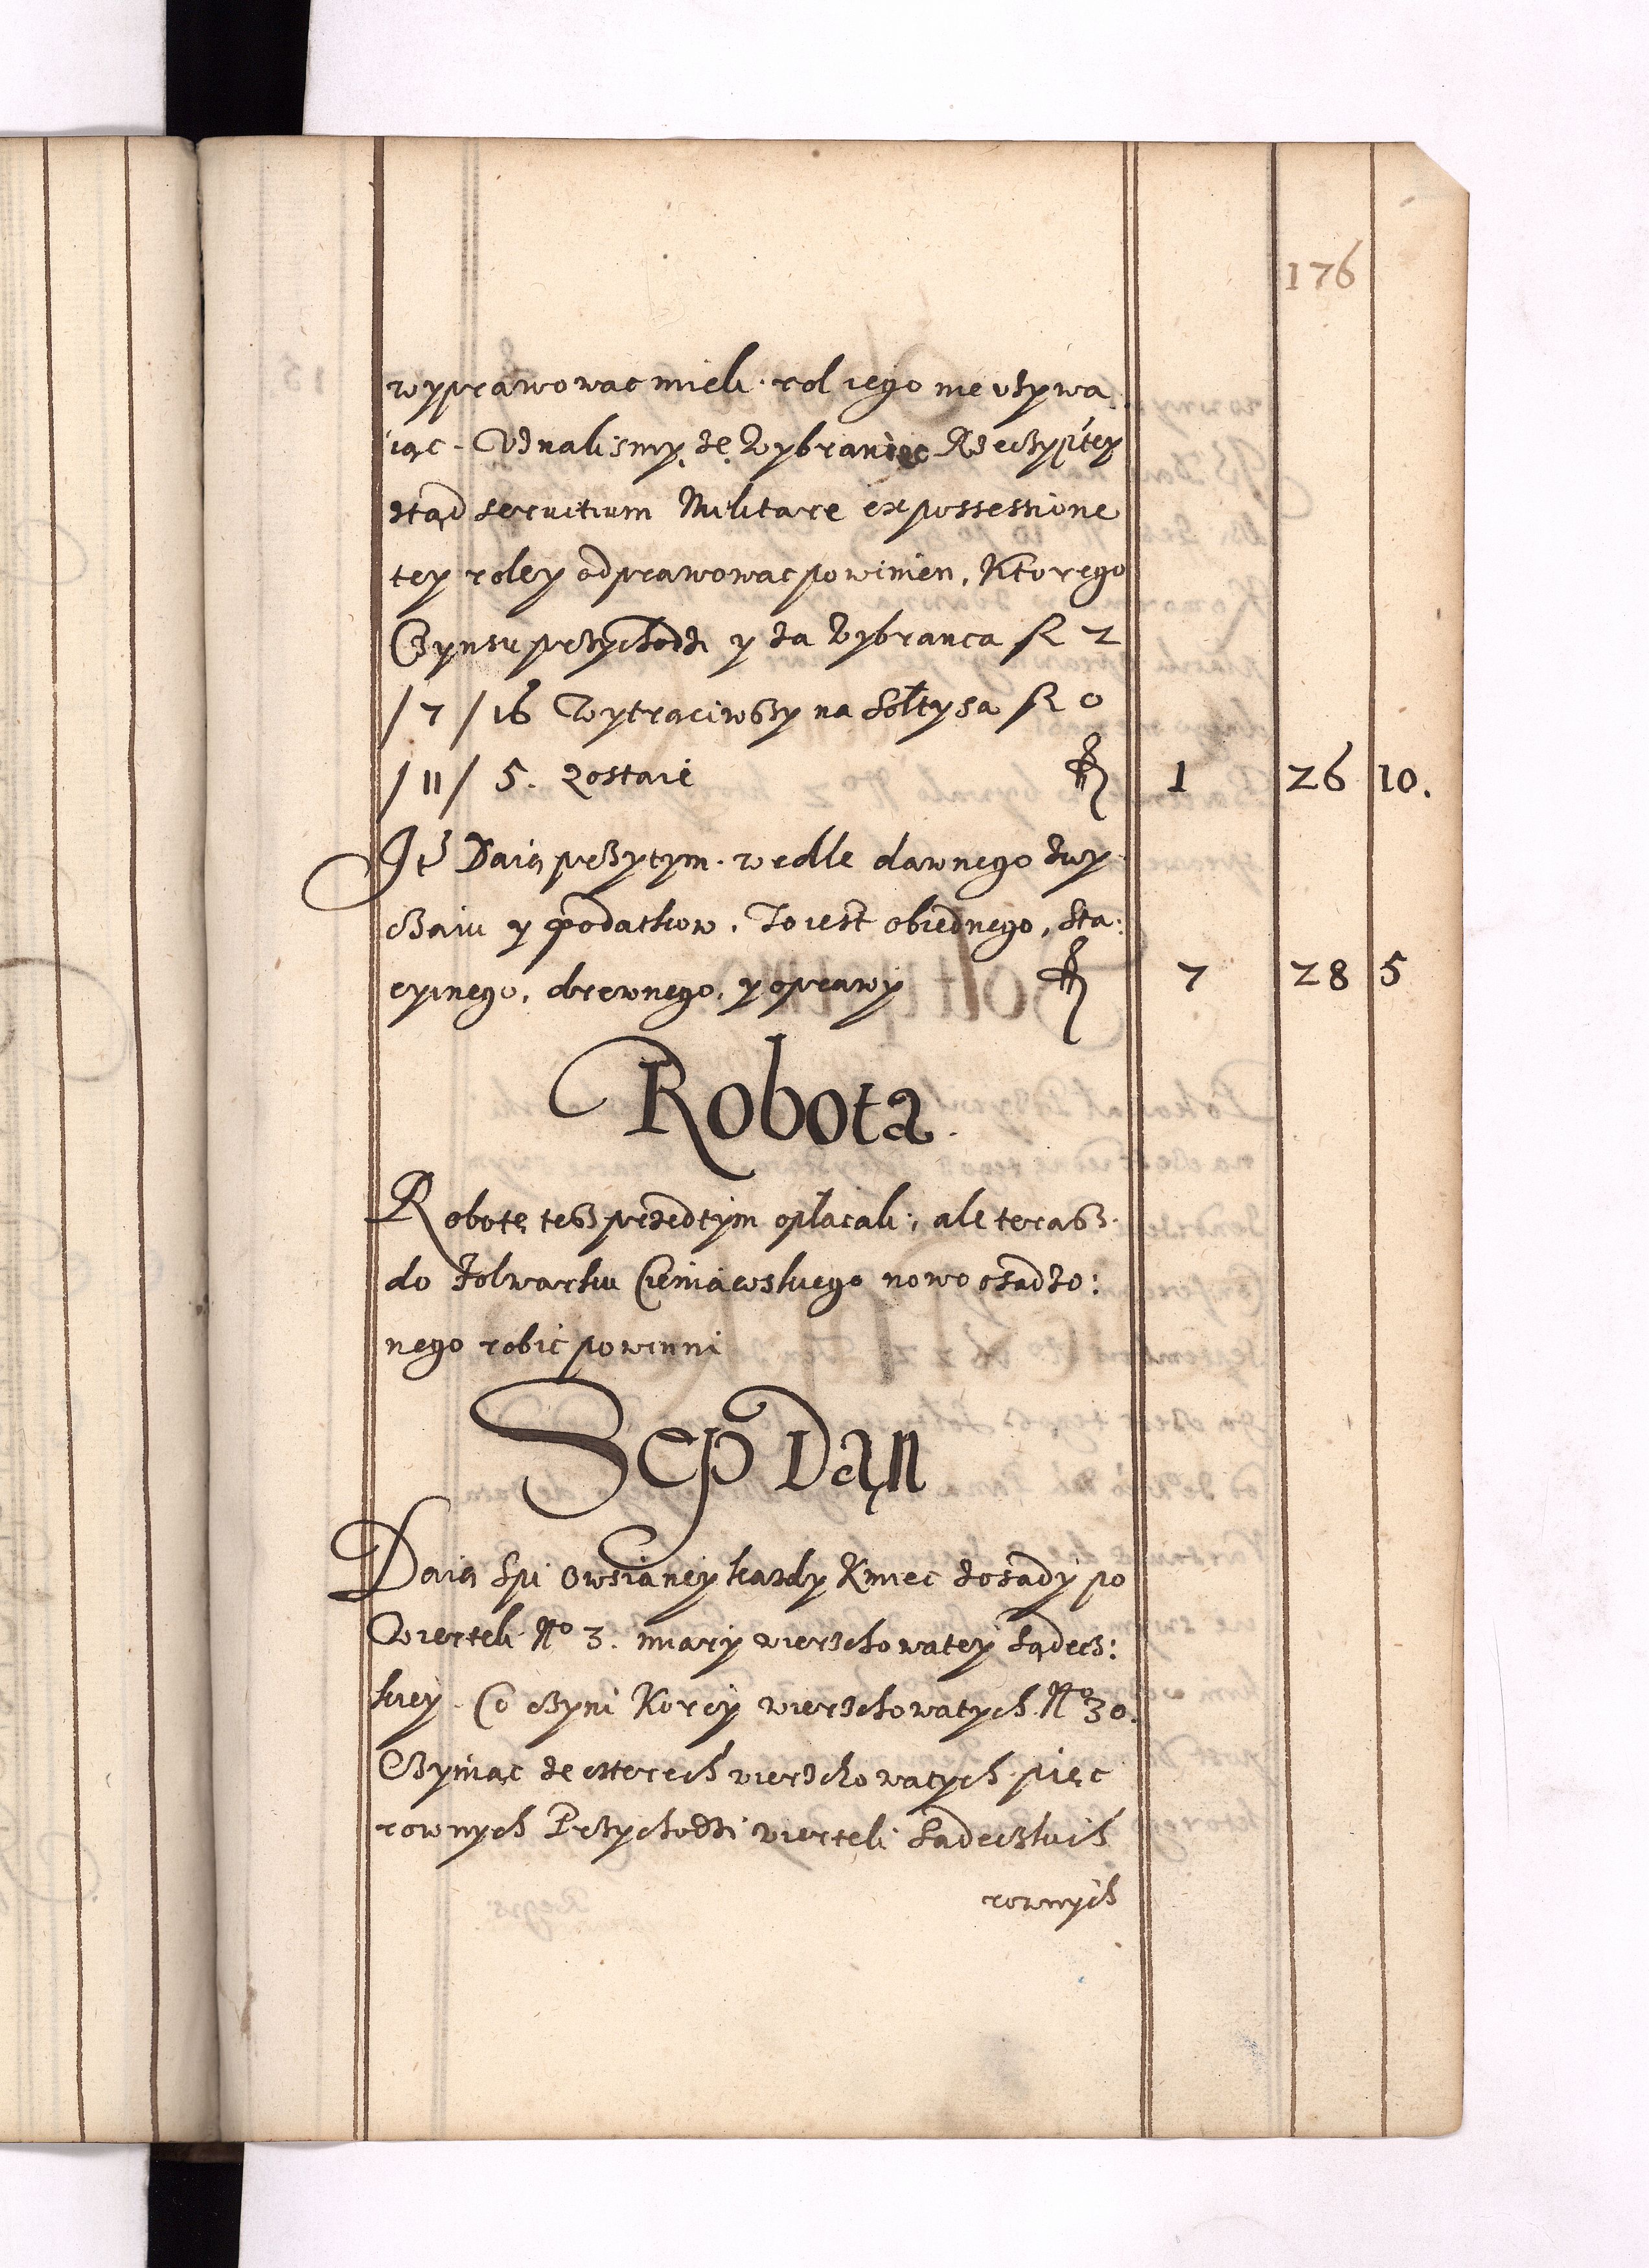 176
wyprawowac mieli. rol iego nie vzywa
iąc. Vznalismy, ze, Wybraniec Rzeczypltey
ztąd seruitium Militare ex possessione
tey roley odprawowac powinien, Ktorego
Czynsu przychodzi y za Wybranca fl 2
/ 7 / 16 Wytraciwszy na Sołtysa fl 0
/ 11 / 5. Zostaie fl 1 26 10.
Daią przytym. wedle dawnego zwy
czaiu y podatkow. To iest obiednego, sta:
cyinego, drewnego, y oprawy fl 7 28 5
Robota.
Robotę tesz przedtym opłacali; ale terasz.
do folwarku Cieniawskiego nowo osadzo:
nego robic powinni
Sep Dąn
Daią Spi Owsianey kazdy Kmiec zosady po
Cwierteli No 3. miary wierzchowatey Sądecz:
kiey. Co czyni Korcy wierzchowatych No 30.
Czyniąc ze czterech wierzchowatych pięc
rownych Przychodzi wierteli Sadeczkich
rownych